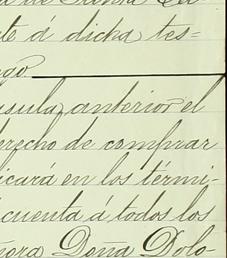 te á dicha tes=
sula, anterior el
erecho de comprar
icará en los térmi-
cuenta á todos los
ñora Doña Dolo-